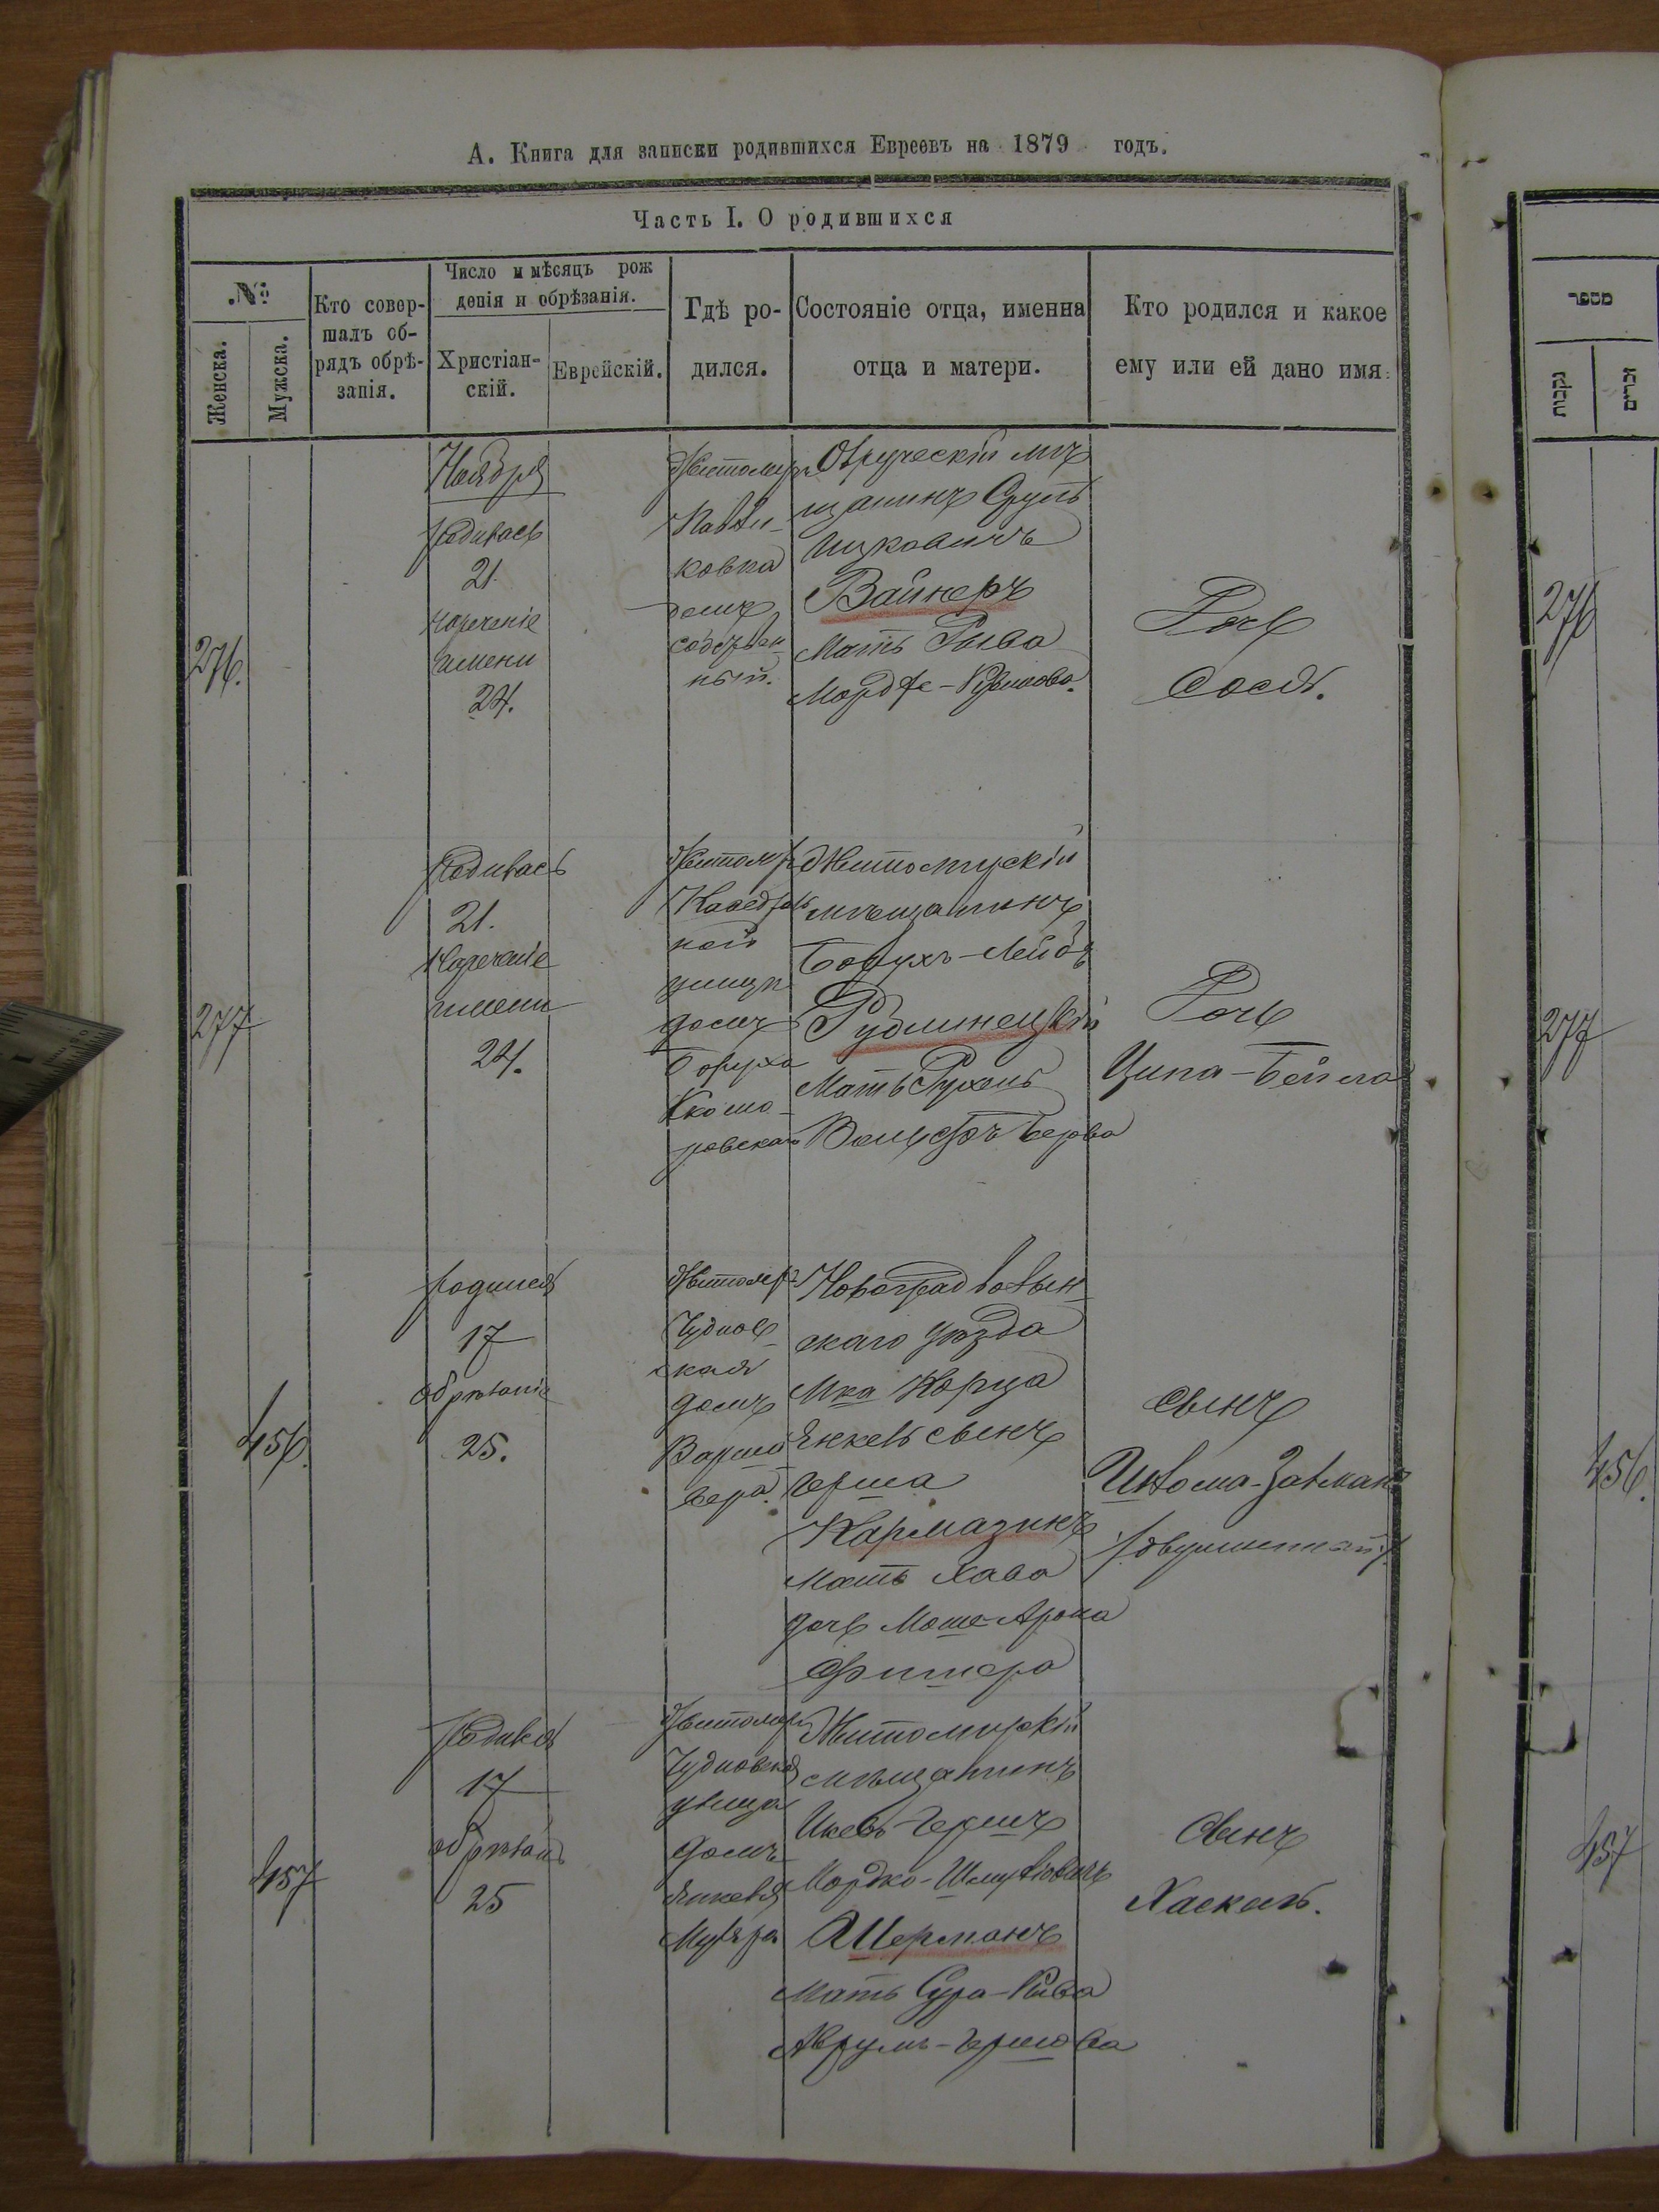 А. Книга для записки родившихся Евреевъ на 1879 годъ.
Часть I. О родившихся
№
Женска.
Мужска.
Кто совер-
шалъ об-
рядъ обрѣ-
занія.
Число и мѣсяцъ рож
денія и обрѣзанія.
Христіан-
скій.
Еврейскій.
Гдѣ ро-
дился.
Состояніе отца, именна
отца и матери.
Кто родился и какое
ему или ей дано имя.
276.
Ноября
родилась
21.
наречение
имени
24.
Житомиръ
Павли-
ковка
домъ
собствен-
ный.
Овруческій мѣ
щанинъ Сруль
Ицковичъ
Вайнеръ
Мать Рыва
Мордке-
Дочь
Сося.
277
родилась
21.
Наречение
имени
24.
Житомиръ
Кафедраль
ной
улицы
домъ
Боруха
Житомирскій
мѣщанинъ
Борухъ-Лейбъ
Рудминецкій
Мать Рухель
Вольфъ Берова
Дочь
Ципа-Бейла
456.
родился
17
обрѣзаніе
25.
Житомиръ
Чуднов-
ская
домъ
Варша
вера.
Новоградволын-
скаго уѣзда
М-ка Корца
Янкель сынъ
Герша
Кармазинъ
Мать Хава
дочь Моше-Арона
Фишера
Сынъ
Шлома-Залманъ
/двуименный/.
457
родился
17
обрѣзань
25
Житомиръ
Чудновская
улица
домъ
Янкеля
Муляра
Житомирскій
мѣщанинъ
Гершъ
Мордко-Шмулiовичъ
Шерманъ
Мать Сура-Рива
Аврумъ-Гершова
Сынъ
Хаскель.
מספר
נקבות
זכרים
276
277
456.
457